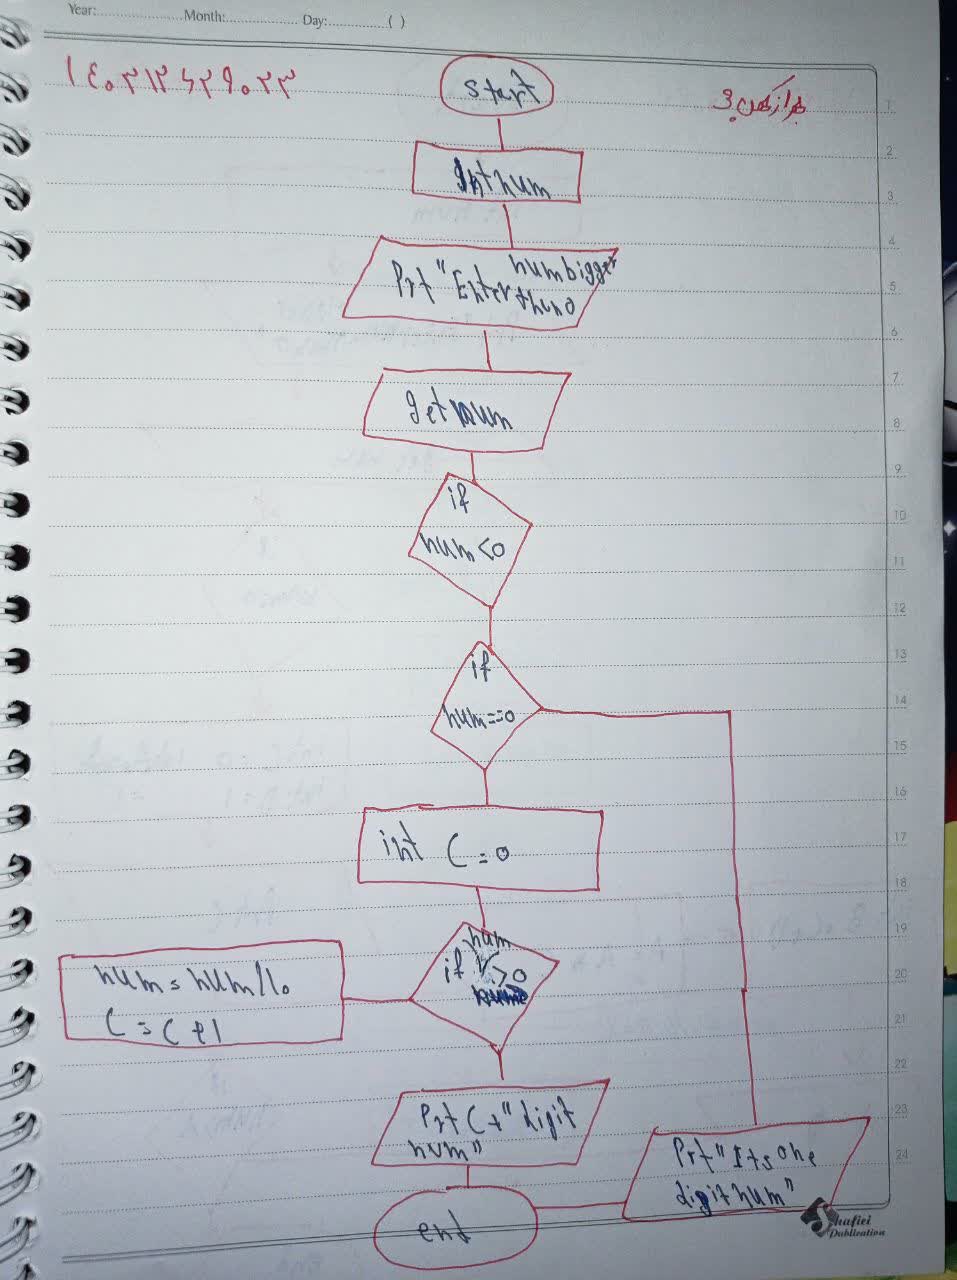 Year: Month: Day: ( )
۱۴۰۲۱۲۶۲۹۰۲۳
start
Int num
Prt "Enter num bigger
than 0
get num
if
num<0
if
num==0
int C=0
if num
>0
num = num/10
C = C+1
Prt C+"digit
num"
Prt "Its one
digit num"
end
1
2
3
4
5
6
7
8
9
10
11
12
13
14
15
16
17
18
19
20
21
22
23
24
Shafiei
Publication